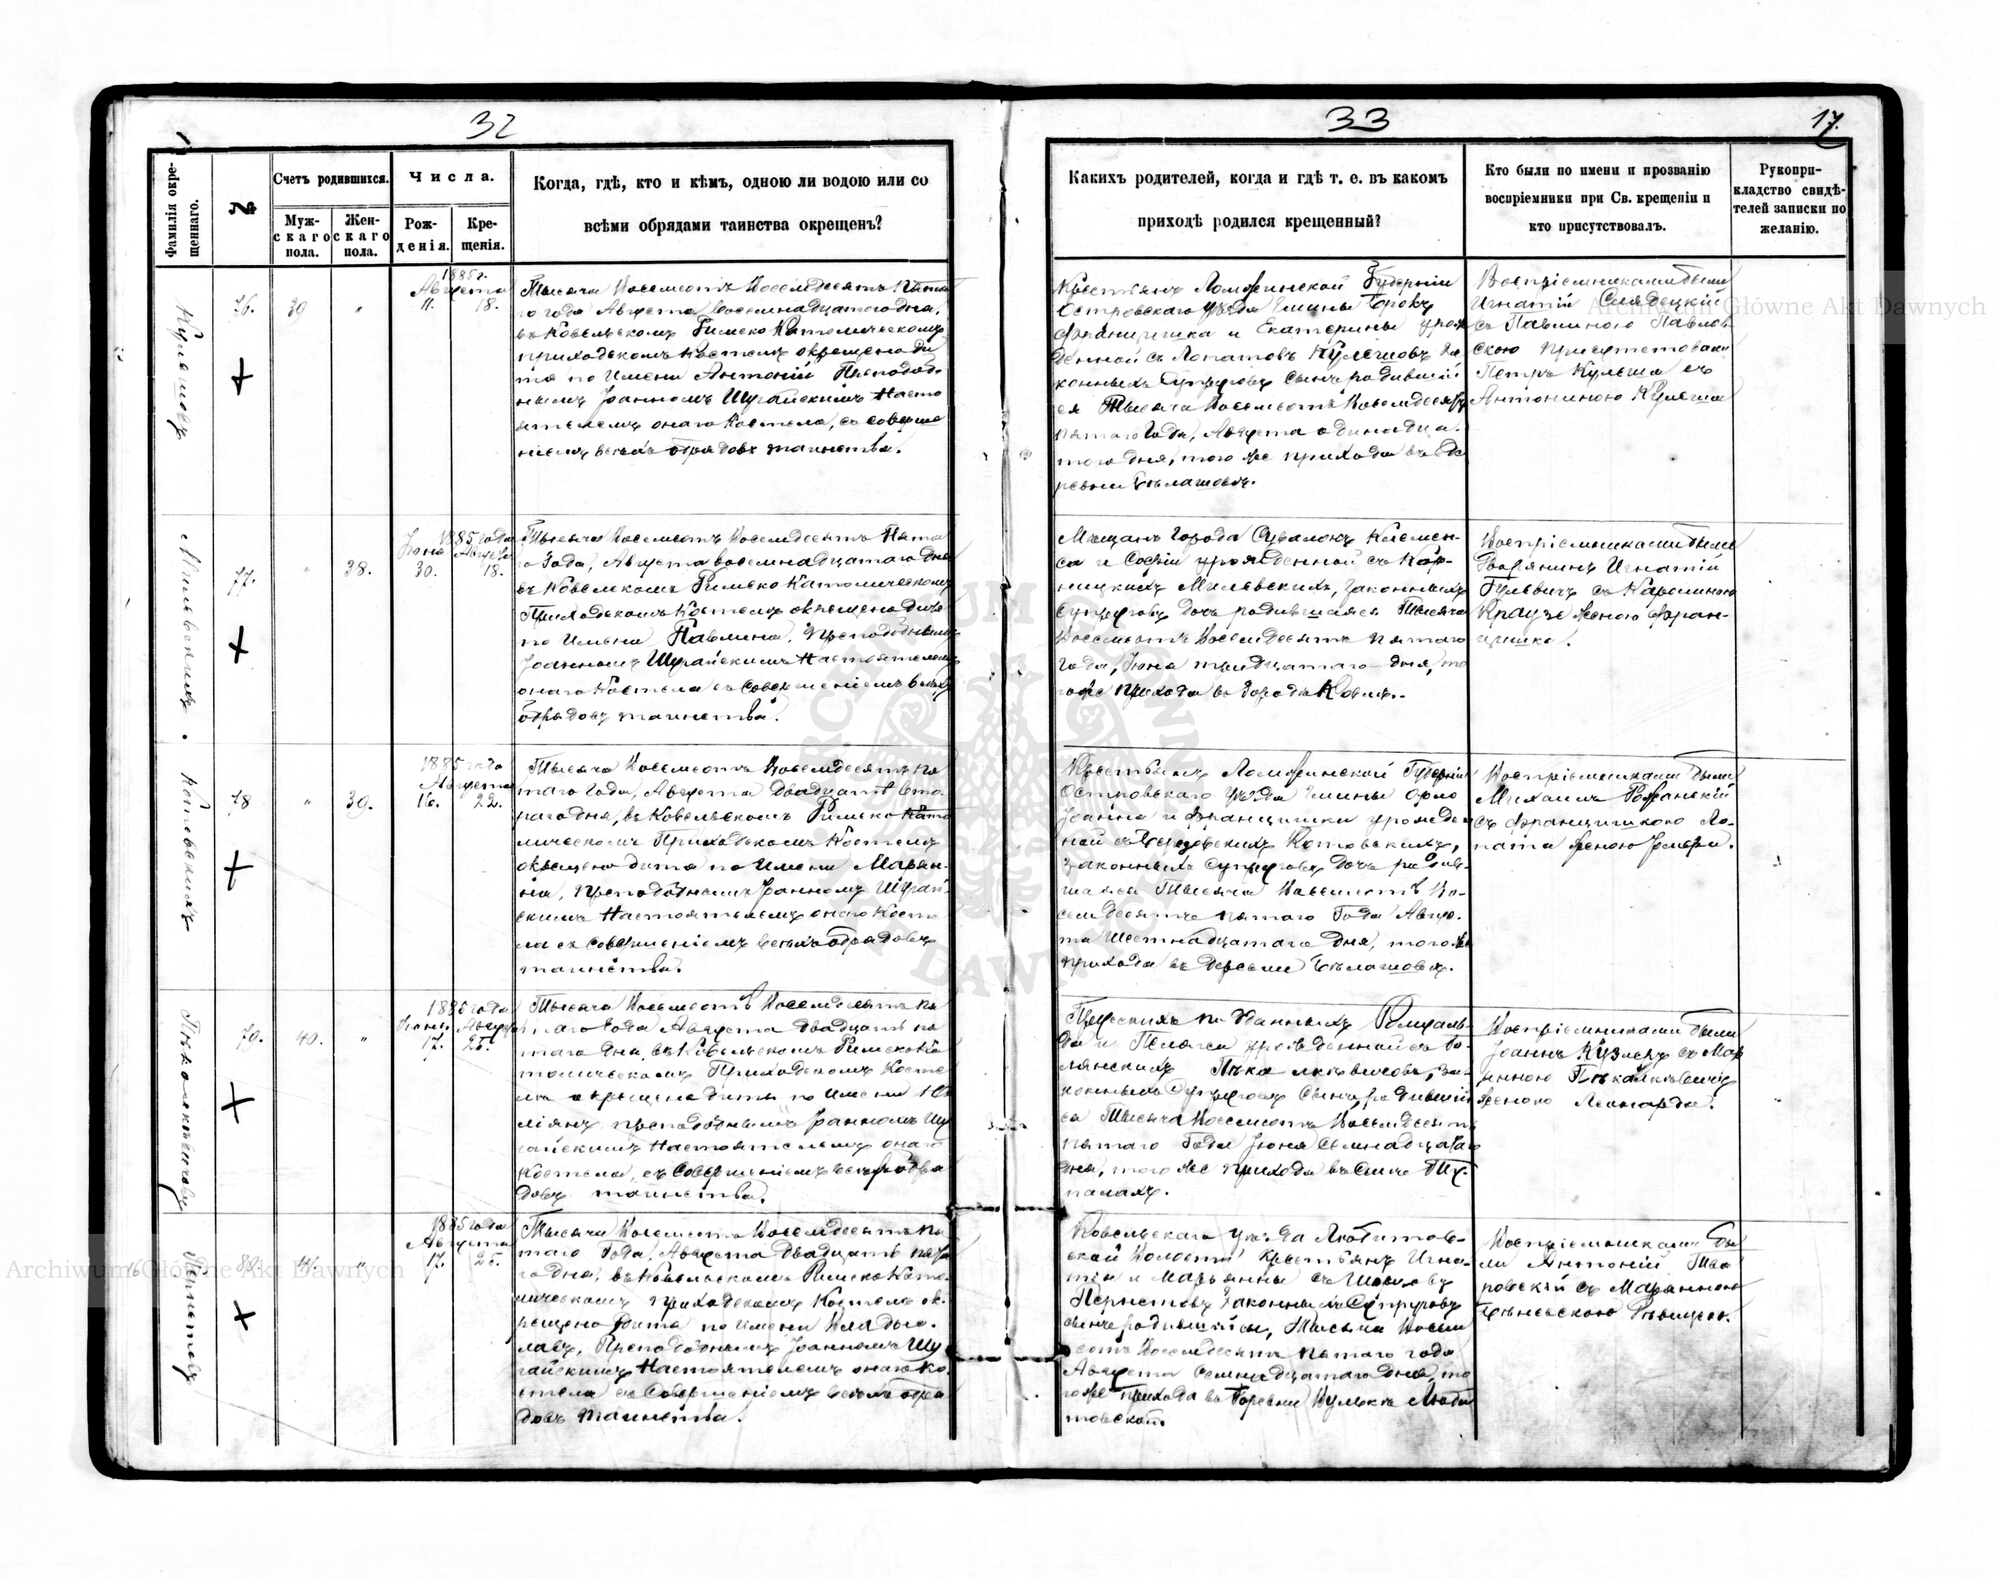 32
Фамилія окре-
щеннаго.
№
Счетъ родившихся.
Муж-
скаго
пола.
Жен-
скаго
пола.
Числа.
Рож-
денія.
Кре-
щенія.
Когда, гдѣ, кто и кѣмъ, одною ли водою или со
всѣми обрядами таинства окрещенъ?
76. 39 „
1885 г.
Августа
11. 18.
Тысяча Восемсотъ Восемдесятъ Пята
го года Августа Восемнадцатого дня,
въ Ковельскомъ Римско Католическомъ
приходскомъ Костелѣ окрещено ди
тя по имени Антоній Преподоб-
нымъ Іоанномъ Шугайскимъ Насто
ятелемъ онаго Костела, съ соверше
ніемъ всѣхъ обрядовъ таинства.
77. „ 38.
1885 года
Іюня Августа
30. 18.
Тысяча Восемсотъ Восемдесятъ Пята
го Года, Августа восемнадцатаго дня
въ Ковельскомъ Римско Католическомъ
Приходскомъ Костелѣ окрещено дитя
по имени Павлина, Преподобнымъ
Іоанномъ Шугайскимъ Настоятелемъ
онаго Костела съ совершеніемъ всѣхъ
обрядовъ таинства.
Котовскихъ
78 „ 39.
1885 года
Августа
16. 22.
Тысяча Восемсотъ Восемдесятъ пя
таго Года, Августа Двадцать вто
раго дня, въ Ковельскомъ Римско Като
лическомъ Приходскомъ Костелѣ
окрещено дитя по имени Марян-
на, преподобнымъ Іоанномъ Шугай-
скимъ Настоятелемъ онаго Косте
ла съ совершеніемъ всѣхъ обрядовъ
таинства.
79. 40. „
1885 года
Іюня Августа
17. 25.
Тысяча Восемсотъ Восемдесятъ пя
таго Года Августа Двадцать пя
таго дня, въ Ковельскомъ Римско Ка
толическомъ Приходскомъ Косте
лѣ окрещено дитя по имени Ю
ліянъ, преподобнымъ Іоанномъ Шу
гайскимъ Настоятелемъ онаго
Костела, съ совершеніемъ всѣхъ обря
довъ таинства.
Пернетовъ
80. 41. „
1885 года
Августа
17. 25.
Тысяча Восемсотъ Восемдесятъ пя
таго Года, Августа Двадцать пята
го дня, въ Ковельскомъ Римско Като
лическомъ приходскомъ Костелѣ ок-
рещено дита по имени Владыс-
лавъ, Преподобнымъ Іоанномъ Шу
гайскимъ Настоятелемъ онаго Ко-
стела съ Совершеніемъ всѣхъ обря
довъ таинства.
33
17.
Какихъ родителей, когда и гдѣ т. е. въ какомъ
приходѣ родился крещенный?
Кто были по имени и прозванію
воспріемники при Св. крещеніи и
кто присутствовалъ.
Рукопри-
кладство свидѣ-
телей записки по
желанію.
Крестьянъ Ломжинской Губерніи
Островскаго уѣзда Гмины
Францишка и Екатерины урож
денной съ Лопатовъ Кулешовъ за
конныхъ Супруговъ Сынъ родившій
ся Тысяча Восемсотъ Восемдесятъ
пятаго Года, Августа одинадца-
того дня, того же прихода въ де
ревни
Воспріемниками были
Игнатій
съ Павлиною Павлов
скою присутствовали
Петръ Кулеша съ
Антониною Кулеша
Мѣщанъ Города Сувалокъ Клемен-
са и Софіи урожденной съ Кор-
ницкихъ Милевскихъ, законныхъ
супруговъ дочь родившаяся Тысяча
Восемсотъ Восемдесятъ пятаго
года, Іюня тридцатаго дня, то
гоже прихода въ Городѣ Ковлѣ.
Воспріемниками были
Дворянинъ Игнатій
Гулевичъ съ Каролиною
Краузе женою Фран-
цишка.
Крестьянъ Ломжинской Губерніи
Островскаго уѣзда Гмины Орло
Іоанна и Францишки урожден
ной съ Котовскихъ,
законныхъ супруговъ дочь родив-
шаяся Тысяча Восемсотъ Во-
семдесятъ пятаго Года Авгус-
та Шестнадцатаго Дня, того же
прихода въ деревни
Воспріемниками были
Михаилъ
съ Францишкою Ло-
пата женою
подданныхъ Ромуаль-
да и
за-
конныхъ Супруговъ Сынъ, родившій
ся Тысяча Восемсотъ Восемдесятъ
пятаго Года Іюня Семнадцатаго
дня, того же прихода въ
Воспріемниками были
Іоаннъ съ Мар
янною
женою Леонарда.
Ковельскаго уѣзда Любитов-
ской Волости Крестьянъ Игна-
тія и Марьянны съ
Пернетовъ Законныхъ Супруговъ
сынъ родившійся, Тысяча Восем
сотъ Восемдесятъ пятаго года
Августа Семнадцатаго дня, то
гоже прихода въ
Воспріемниками бы
ли Антоній
съ Марянною
Archiwum Główne Akt Dawnych
Archiwum Główne Akt Dawnych